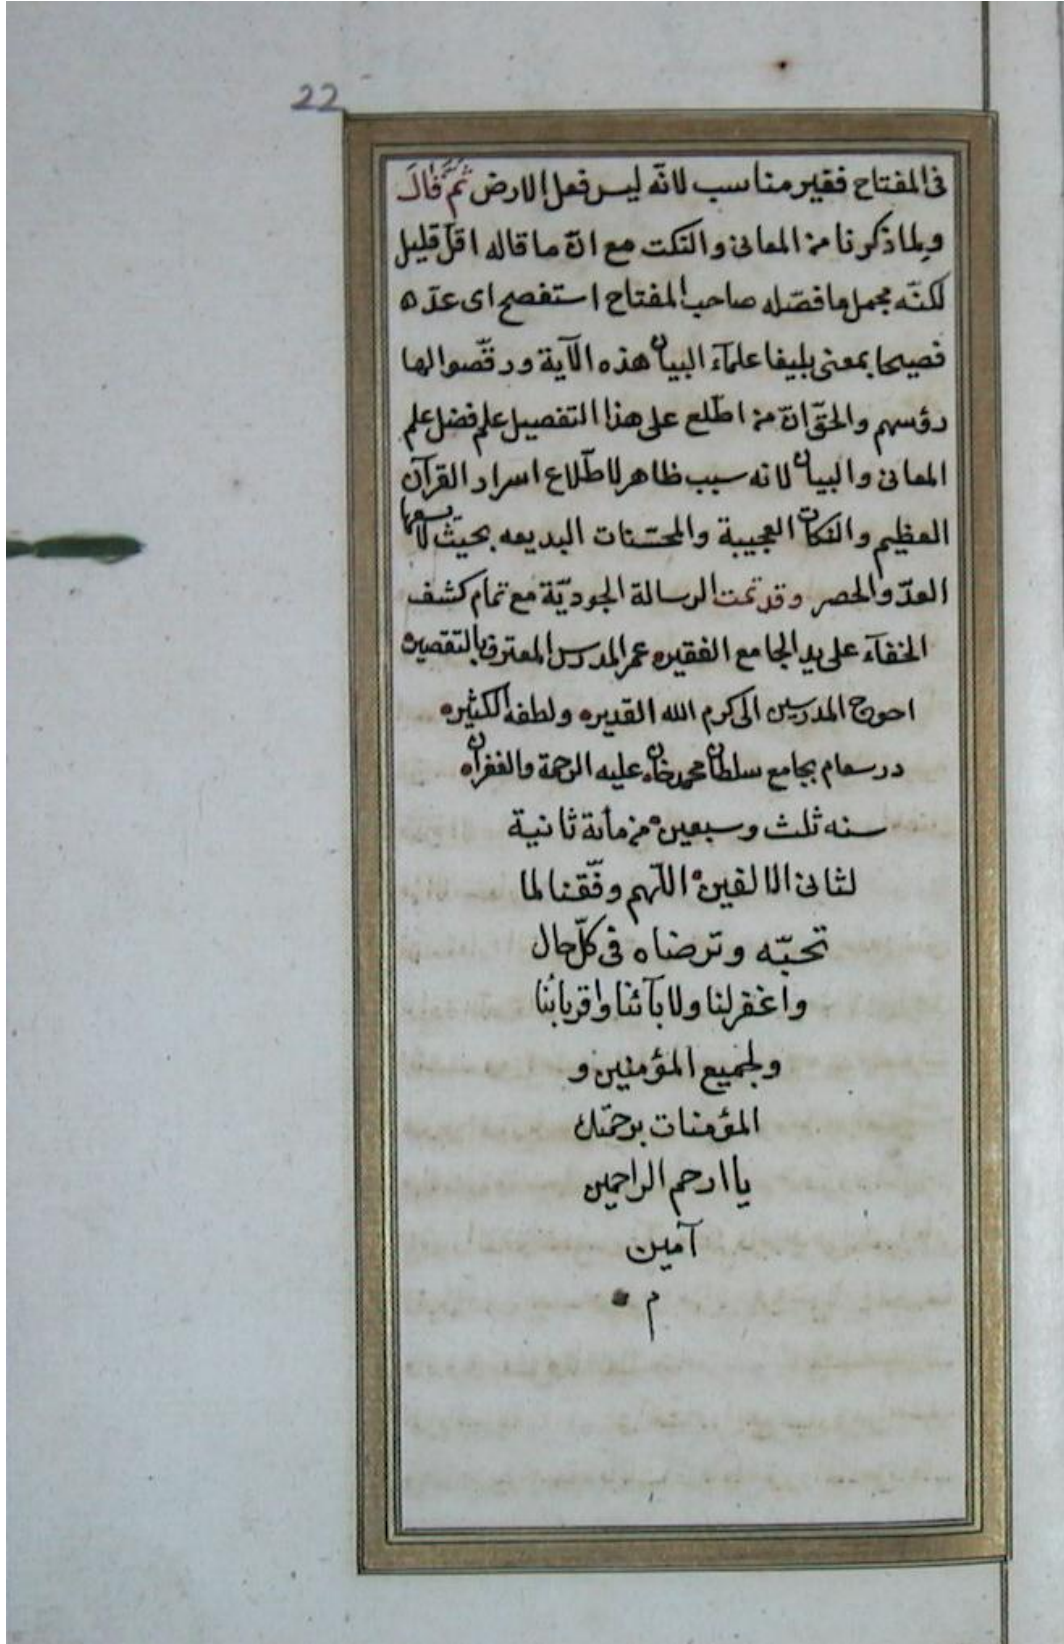 22
فى المفتاح فقير مناسب لانّه ليس فعل الارض ثمّ قال
ولما ذكرنا من المعانى والنكت مع انّ ما قاله اقلّ قليل
لكنّه مجمل ما فصّله صاحب المفتاح استفصح اى عدّه
فصيحا بمعنى بليغا علمآء البيان هذه الآية ورقّصوا لها
رؤسهم والحقّ انّ من اطّلع على هذا التفصيل علم فضل علم
المعانى والبيان لانه سبب ظاهر لاطّلاع اسرار القرآن
العظيم والنكات العجيبة والمحسّنات البديعه بحيث لا يسعها
العدّ والحصر وقد تمت الرسالة الجوديّة مع تمام كشف
الخفآء على يد الجامع الفقيره عمر المدرس المعترف بالتقصيره
احوج المدرسين الى كرم الله القديره ولطفه الكثيره
درسعام بجامع سلطان محمد خان عليه الرحمة والغفران
سنه ثلث وسبعين من مأة ثانية
لثانى الالفين اللّهم وفّقنا لما
تحبّه وترضاه فى كلّ حال
واغفر لنا ولابآئنا واقربائنا
ولجميع المؤمنين و
المؤمنات برحمتك
يا ارحم الراحمين
آمين
م